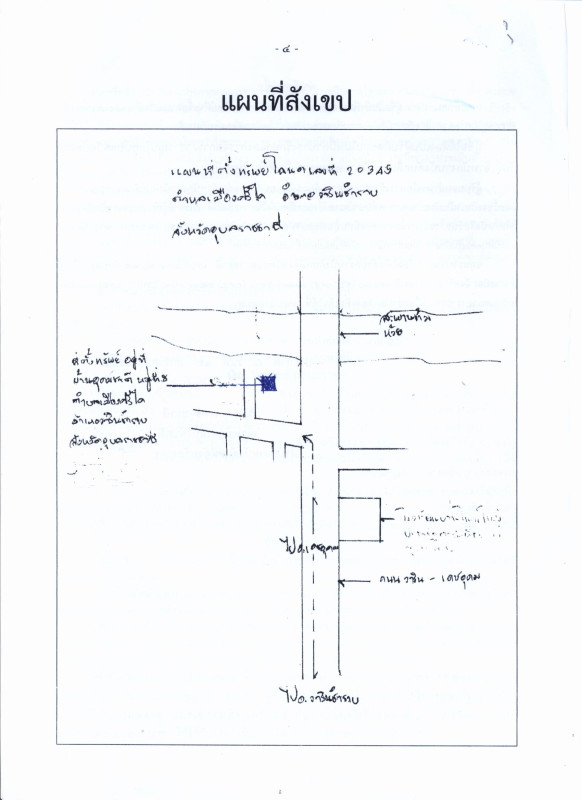 - ๔ -
แผนที่สังเขป
แผนที่ตั้งทรัพย์โฉนดเลขที่ 20345
ตำบลเมืองศรีไค อำเภอวารินชำราบ
จังหวัดอุบลราชธานี
สะพานข้าม
ห้วย
ที่ตั้งทรัพย์ อยู่ที่
หมู่ที่ 8
ตำบลเมืองศรีไค
อำเภอวารินชำราบ
จังหวัดอุบลราชธานี
ไปอ.เดชอุดม
ถนน วาริน - เดชอุดม
ไปอ.วารินชำราบ